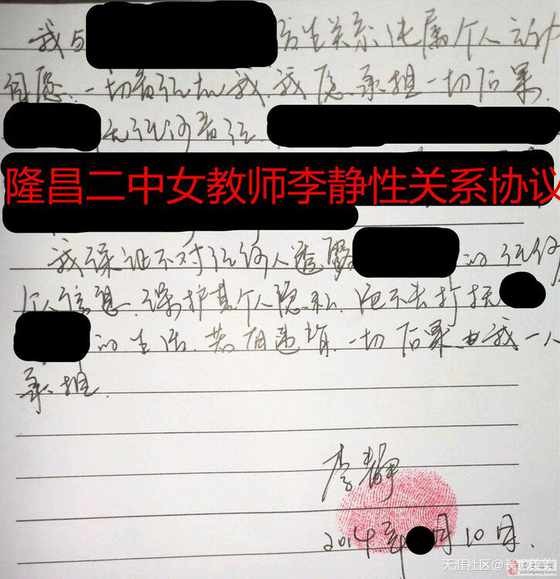 我与 发生关系,纯属个人 自愿
一切责任在我,我愿承担一切后果,
无任何责任
隆昌二中女教师李静性关系协议
我保证不对任何人透露 的任何
个人信息,保护其个人隐私,绝不去打扰
的生活,若有违背,一切后果由我一人
承担.
李静
2014年 月10日.
天涯社区@